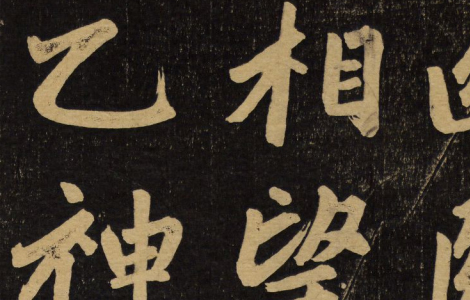 相望
乙神